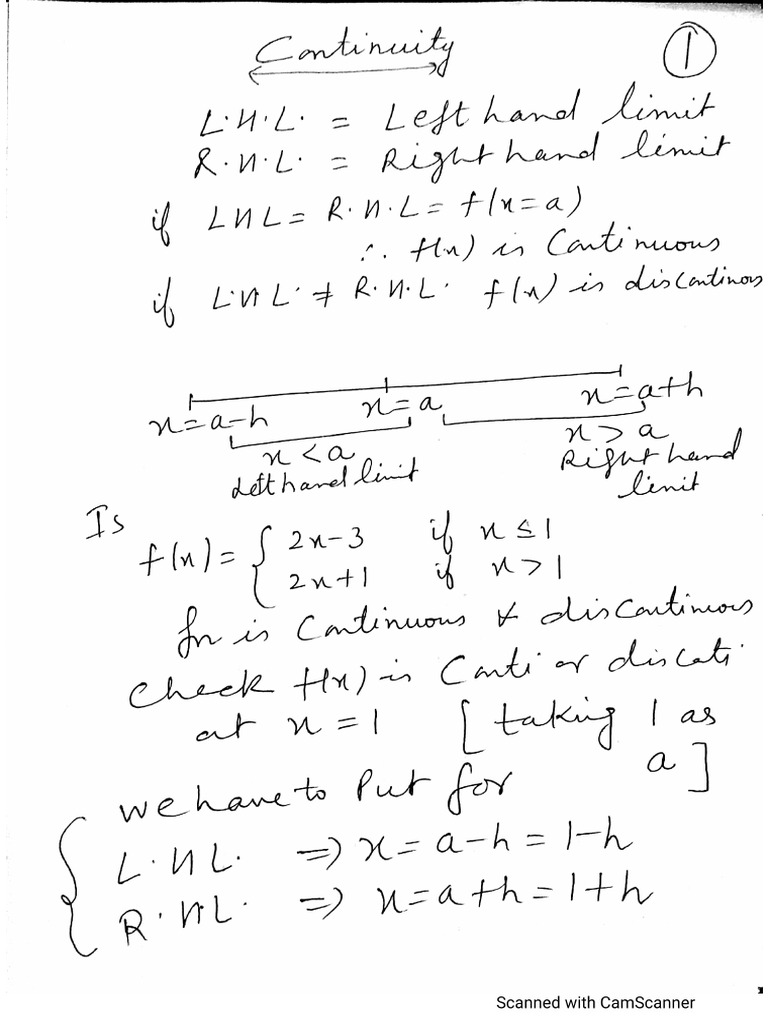 Continuity
1
L.H.L. = Left hand limit
R.H.L. = Right hand limit
if LHL = R.H.L = f(x=a)
∴ f(x) is Continuous
if L.H.L. ≠ R.H.L. f(x) is discontinous
x=a-h x=a x=a+h
x<a x>a
Left hand limit Right hand
limit
Is
f(x) = { 2x-3 if x ≤ 1
2x+1 if x > 1
fn is Continuous & discontinuous
Check f(x) is Conti or discoti.
at x = 1 [taking 1 as
a]
we have to Put for
L.H.L. ⇒ x = a-h = 1-h
R.H.L. ⇒ x = a+h = 1+h
Scanned with CamScanner